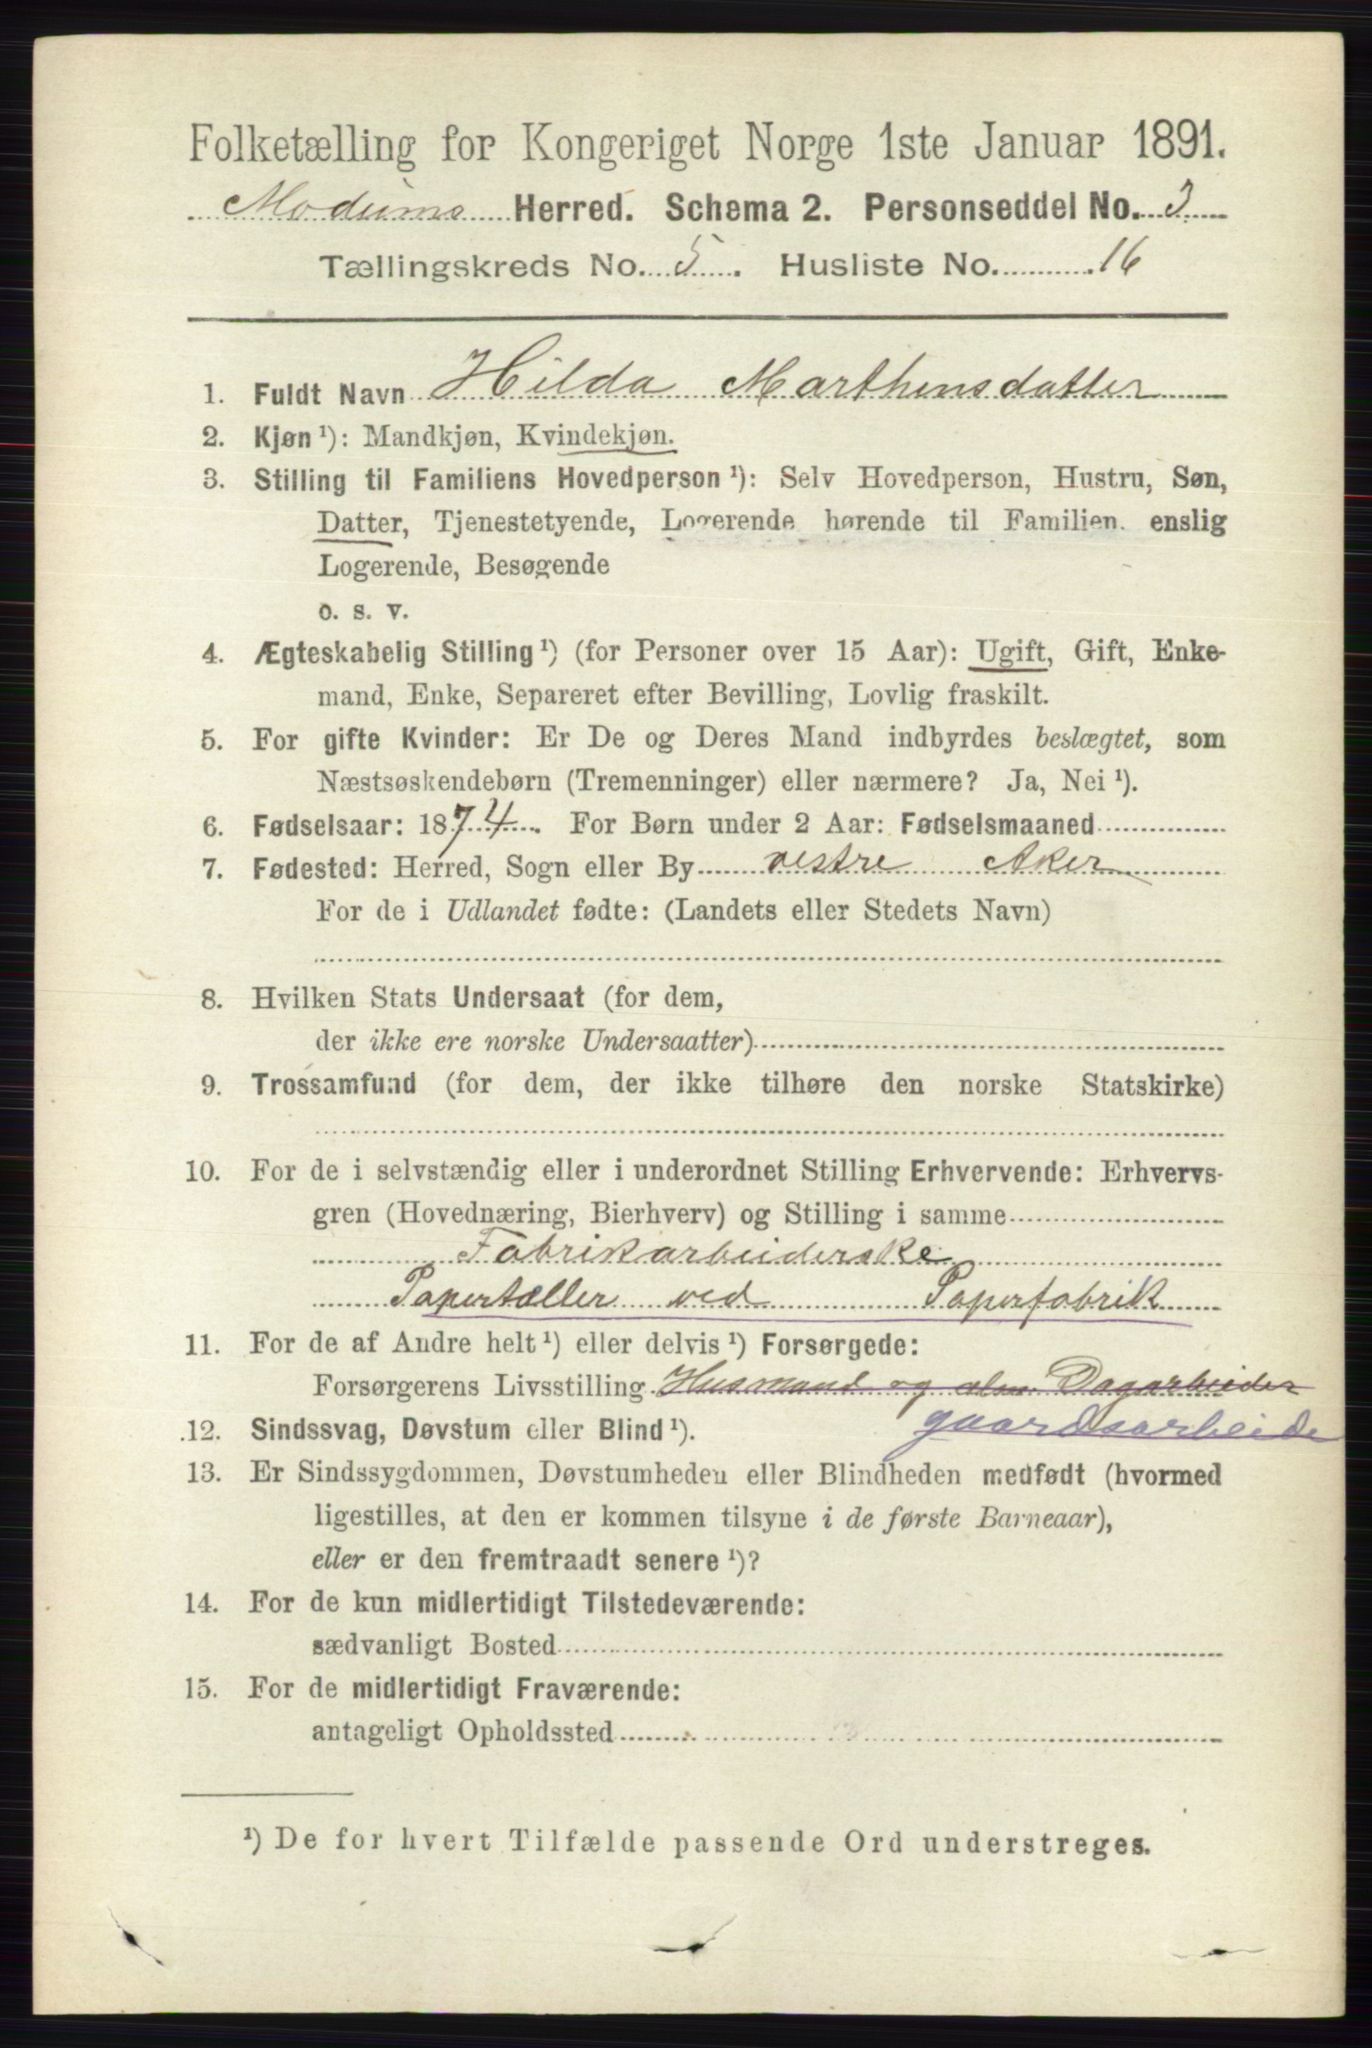 Folketælling for Kongeriget Norge 1ste Januar 1891.
Modums Herred. Schema 2. Personseddel No. 3
Tællingskreds No. 5. Husliste No. 16
1. Fuldt Navn Hilda Marthinsdatter
2. Kjøn ¹): Mandkjøn, Kvindekjøn.
3. Stilling til Familiens Hovedperson ¹): Selv Hovedperson, Hustru, Søn,
Datter, Tjenestetyende, Logerende hørende til Familien, enslig
Logerende, Besøgende
o. s. v.
4. Ægteskabelig Stilling ¹) (for Personer over 15 Aar): Ugift, Gift, Enke-
mand, Enke, Separeret efter Bevilling, Lovlig fraskilt.
5. For gifte Kvinder: Er De og Deres Mand indbyrdes beslægtet, som
Næstsøskendebørn (Tremenninger) eller nærmere? Ja, Nei ¹).
6. Fødselsaar: 1874. For Børn under 2 Aar: Fødselsmaaned
7. Fødested: Herred, Sogn eller By vestre Aker
For de i Udlandet fødte: (Landets eller Stedets Navn)
8. Hvilken Stats Undersaat (for dem,
der ikke ere norske Undersaatter)
9. Trossamfund (for dem, der ikke tilhøre den norske Statskirke)
10. For de i selvstændig eller i underordnet Stilling Erhvervende: Erhvervs-
gren (Hovednæring, Bierhverv) og Stilling i samme
Fabrikarbeiderske
Papertæller ved Paperfabrik
11. For de af Andre helt ¹) eller delvis ¹) Forsørgede:
Forsørgerens Livsstilling Husmand og alm. Dagarbeider
gaardsarbeide
12. Sindssvag, Døvstum eller Blind ¹).
13. Er Sindssygdommen, Døvstumheden eller Blindheden medfødt (hvormed
ligestilles, at den er kommen tilsyne i de første Barneaar),
eller er den fremtraadt senere ¹)?
14. For de kun midlertidigt Tilstedeværende:
sædvanligt Bosted
15. For de midlertidigt Fraværende:
antageligt Opholdssted
¹) De for hvert Tilfælde passende Ord understreges.